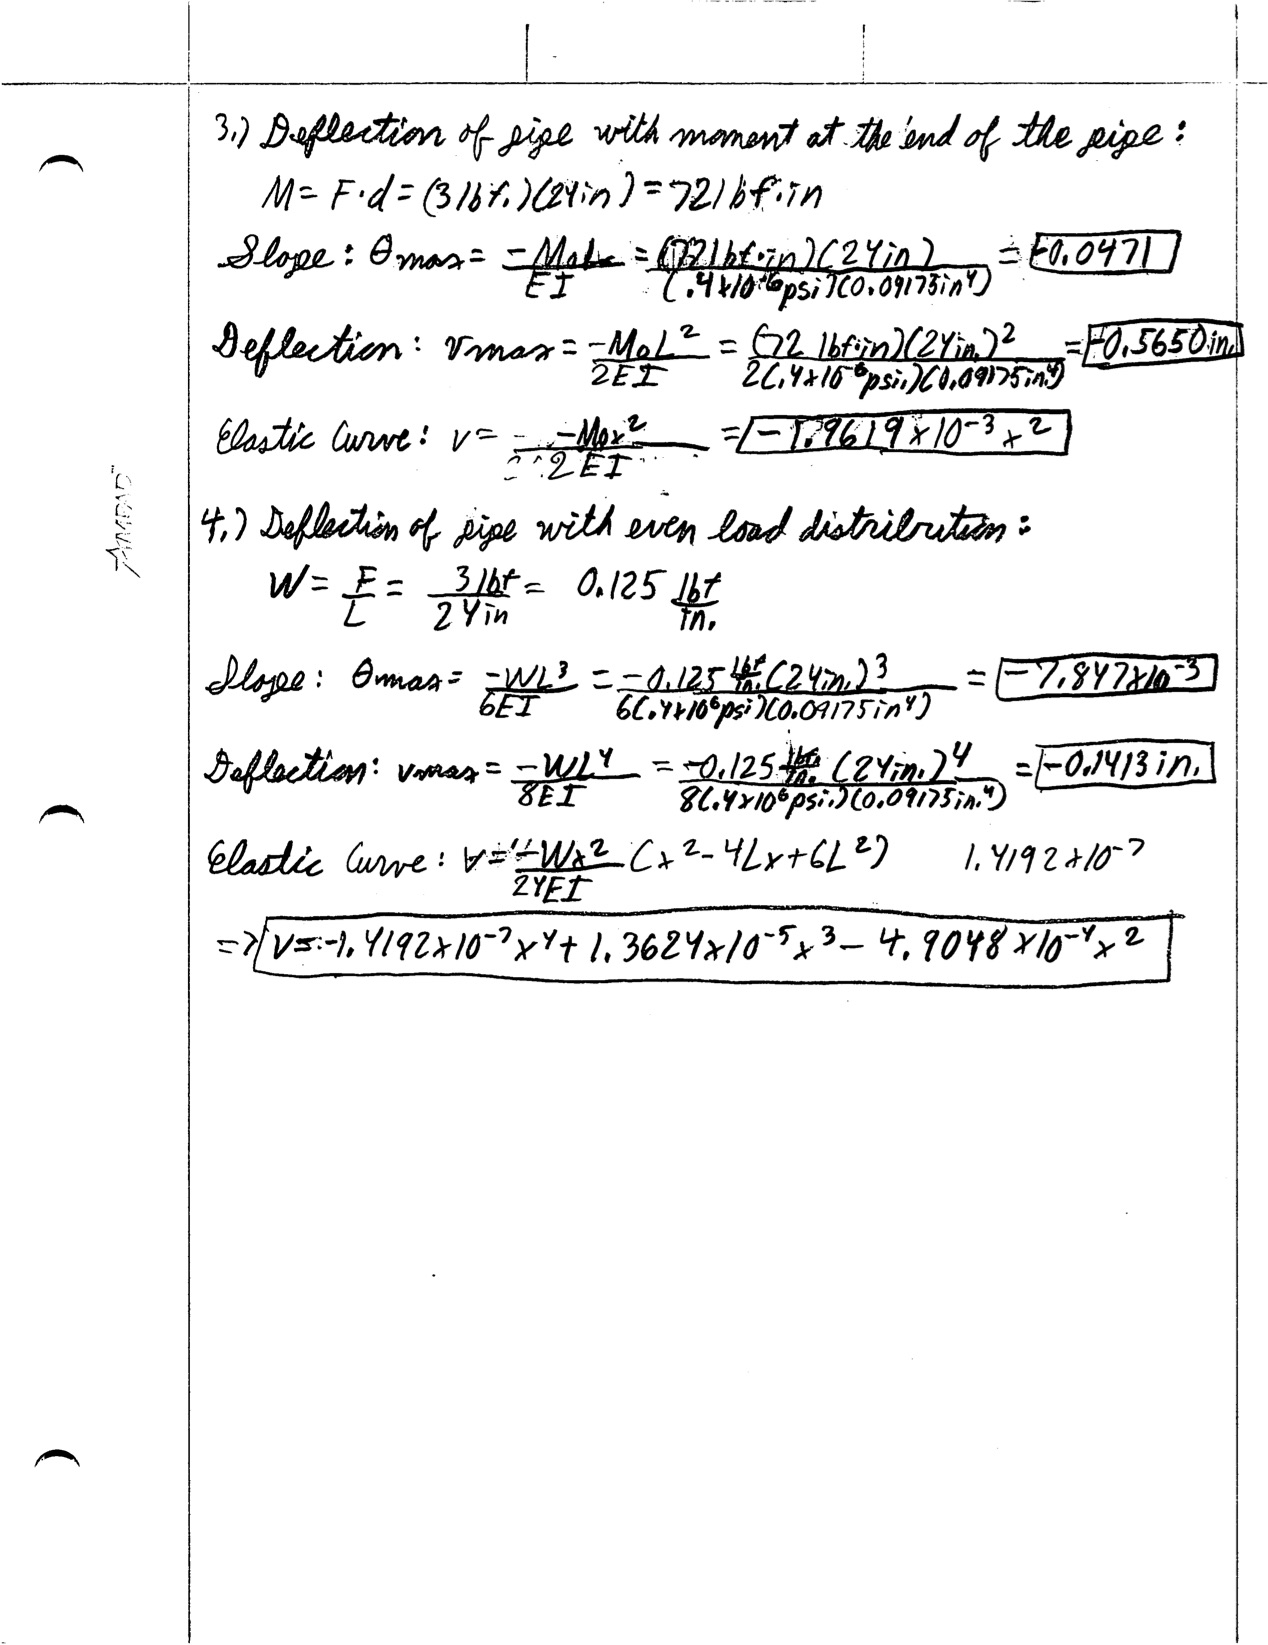 3.) Deflection of pipe with moment at the end of the pipe:
M = F·d = (3 lbf.)(24in) = 72 lbf·in
Slope: θmax = -MoL/EI = (72 lbf·in)(24in)/(.4x10^6 psi)(0.09175in^4) = -0.0471
Deflection: vmax = -MoL^2/2EI = (72 lbf·in)(24in.)^2/2(.4x10^6 psi.)(0.09175in.^4) = -0.5650in.
Elastic Curve: v = -Mox^2/2EI = -1.9619x10^-3 x^2
AMPAD
4.) Deflection of pipe with even load distribution:
W = F/L = 3 lbf/24in = 0.125 lbf/in.
Slope: θmax = -WL^3/6EI = -0.125 lbf/in. (24in.)^3/6(.4x10^6 psi)(0.09175in^4) = -7.847x10^-3
Deflection: vmax = -WL^4/8EI = -0.125 lbf/in. (24in.)^4/8(.4x10^6 psi.)(0.09175in.^4) = -0.1413 in.
Elastic Curve: v = -Wx^2/24EI (x^2-4Lx+6L^2) 1.4192x10^-7
=> v = -1.4192x10^-7 x^4 + 1.3624x10^-5 x^3 - 4.9048x10^-4 x^2